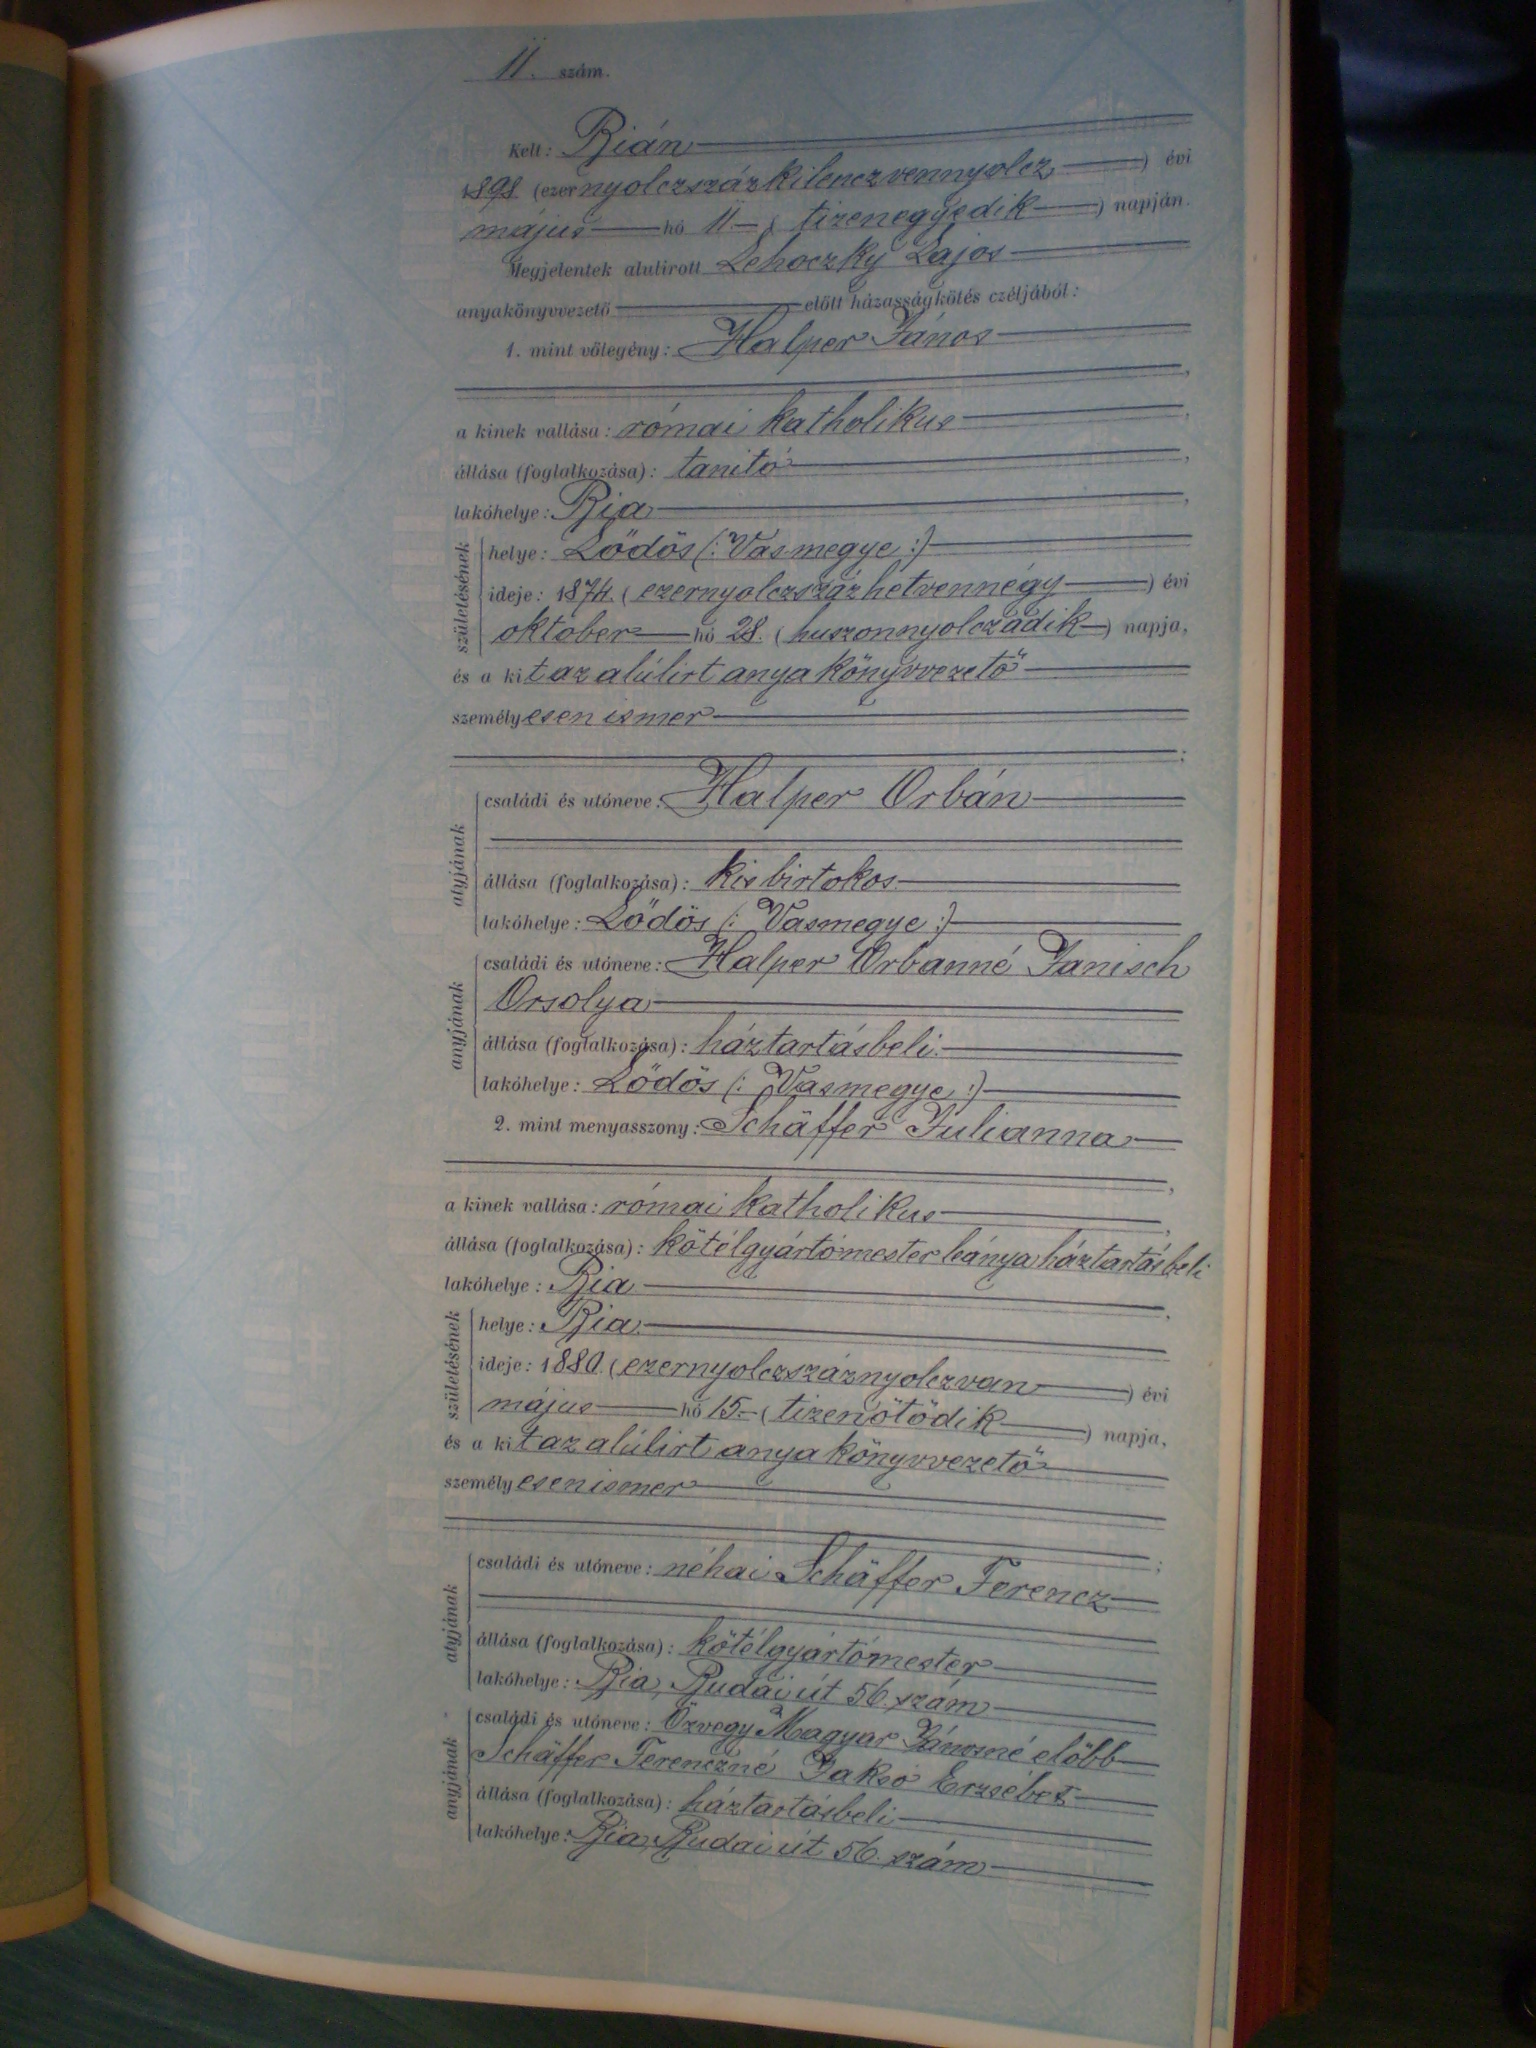 11. szám.
Kelt: Bián
1898 (ezernyolczszázkilenczvennyolcz) évi
május hó 11. ( tizenegyedik ) napján.
Megjelentek alulirott Lehoczky Lajos
anyakönyvvezető előtt házasságkötés czéljából:
1. mint vőlegény: Halper János
a kinek vallása: római katholikus,
állása (foglalkozása): tanitó,
lakóhelye: Bia,
születésének
helye: Lődös (: Vasmegye :)
ideje: 1874. ( ezernyolczszázhetvennégy ) évi
oktober hó 28. ( huszonnyolczadik ) napja,
és a kit az alúlirt anyakönyvvezető
személyesen ismer
;
atyjának
családi és utóneve: Halper Orbán
állása (foglalkozása): kisbirtokos
lakóhelye: Lődös (: Vasmegye :)
anyjának
családi és utóneve: Halper Orbanné Janisch
Orsolya
állása (foglalkozása): háztartásbeli
lakóhelye: Lődös (: Vasmegye :)
2. mint menyasszony: Schäffer Julianna
,
a kinek vallása: római katholikus,
állása (foglalkozása): kötélgyártómester leánya háztartásbeli
lakóhelye: Bia,
születésének
helye: Bia
ideje: 1880. (ezernyolczszáznyolczvan ) évi
május hó 15. ( tizenötödik ) napja,
és a kit az alúlirt anyakönyvvezető
személyesen ismer
;
atyjának
családi és utóneve: néhai Schäffer Ferencz
állása (foglalkozása): kötélgyártómester
lakóhelye: Bia, Budai út 56. szám
anyjának
családi és utóneve: Özvegy Magyar Jánosné előbb
Schäffer Ferenczné Jakso Erzsébet
állása (foglalkozása): háztartásbeli
lakóhelye: Bia, Budai út 56. szám